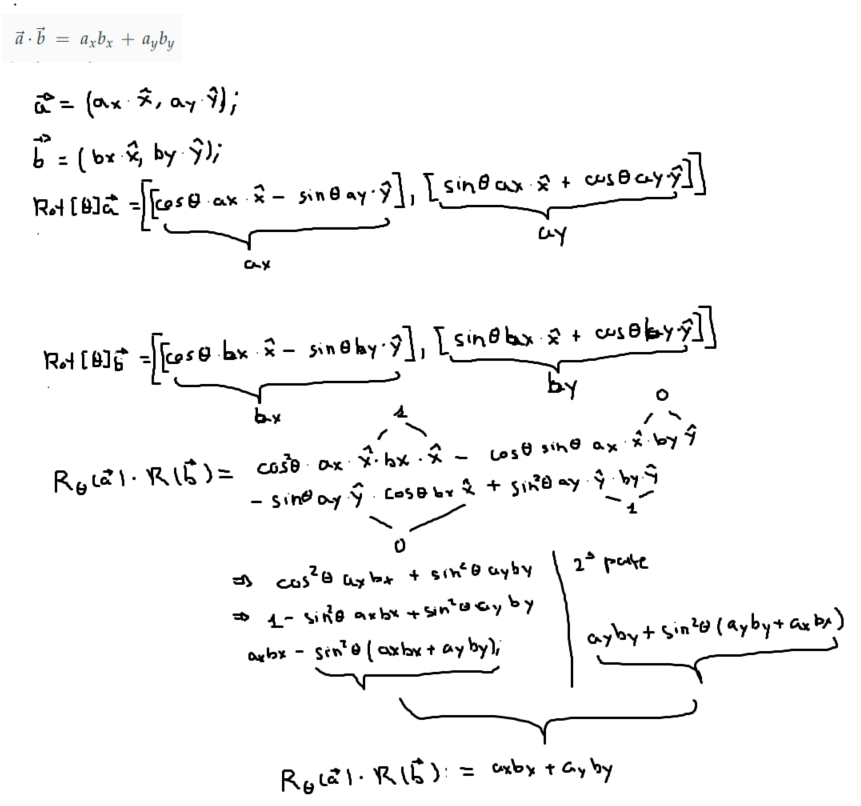 a⃗ · b⃗ = aₓbₓ + a_yb_y
a⃗ = (ax · x̂, ay · ŷ);
b⃗ = (bx · x̂, by · ŷ);
Rot[θ]a⃗ = [[cosθ · ax · x̂ − sinθ ay · ŷ], [sinθ ax · x̂ + cosθ ay · ŷ]]
ax ay
Rot[θ]b⃗ = [[cosθ · bx · x̂ − sinθ by · ŷ], [sinθ bx · x̂ + cosθ by · ŷ]]
bx by
1 0
R_θ(a⃗) · R(b⃗) = cos²θ · ax · x̂ · bx · x̂ − cosθ sinθ ax · x̂ · by ŷ
− sinθ ay · ŷ · cosθ bx x̂ + sin²θ ay · ŷ · by · ŷ
1
0
⇒ cos²θ axbx + sin²θ ayby
2ª parte
⇒ 1 − sin²θ axbx + sin²θ ay by
axbx − sin²θ (axbx + ay by);
ayby + sin²θ (ayby + axbx)
R_θ(a⃗) · R(b⃗) : = axbx + ay by